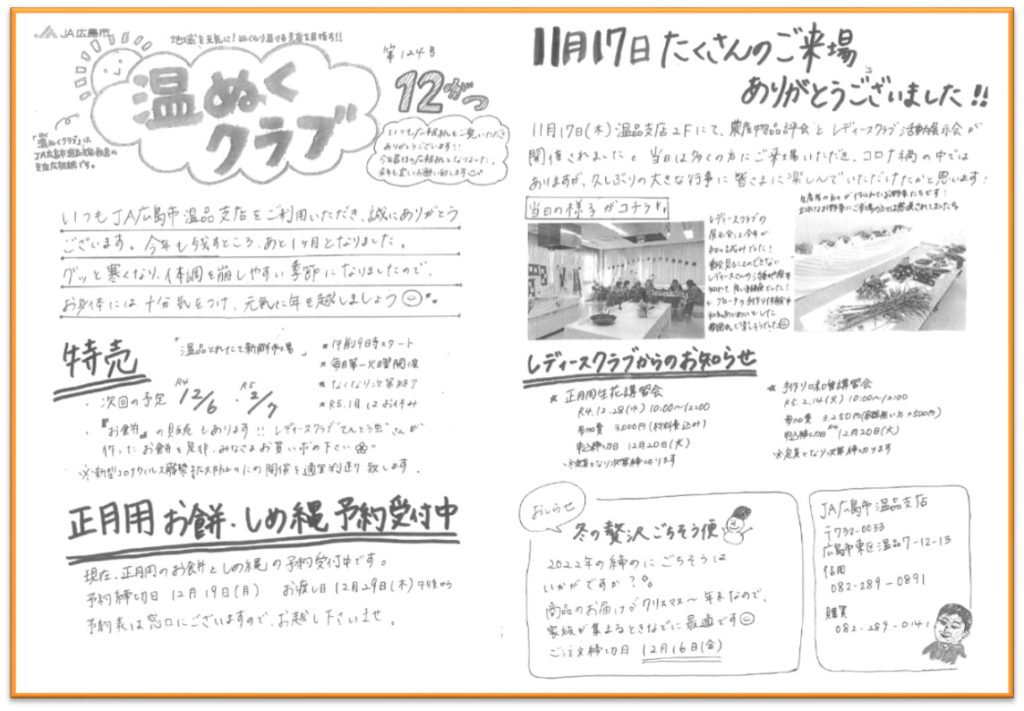 JA広島市
地域を元気に!ぬくもり届ける支店を目指す!!
温ぬく
クラブ
第124号
12がつ
「温ぬくクラブ」は
JA広島市温品支店の
支店広報誌です。
いつも広報誌をご覧いただき
ありがとうございます!!
今年最後の広報誌となりました。
来年も宜しくお願い致します
いつもJA広島市温品支店をご利用いただき、誠にありがとう
ございます。今年も残すところ、あと1ヶ月となりました。
グッと寒くなり、体調を崩しやすい季節になりましたので、
お身体には十分気をつけ、元気に年を越しましょう
特売
「温品とれたて新鮮市場」
* 午前9時スタート
* 毎月第一火曜開催
* なくなり次第終了
* R5.1月はお休み
・次回の予定 R4 12/6 ・ R5 2/7
『お餅』の販売もあります!! レディースクラブ"てんとう虫"さんが
作ったお餅を是非、みなさまお買い求め下さい
正月用 お餅・しめ縄 予約受付中
現在、正月用のお餅としめ縄の予約受付中です。
予約締切日 12月19日(月) お渡し日 12月29日(木) 午後から
予約表は窓口にございますので、お越し下さいませ。
11月17日 たくさんのご来場
ありがとうございました!!
11月17日(木) 温品支店2Fにて、農産物品評会とレディースクラブ活動展示会が
開催されました。当日は多くの方にご来場いただき、コロナ禍の中では
ありますが、久しぶりの大きな行事に皆さまに楽しんでいただけたかと思います!
当日の様子がコチラ
レディースクラブの
展示会は今年が
初の試みでした!
レディースクラブからのお知らせ
★ 正月用生花講習会
R4.12.28(水) 10:00~12:00
参加費 3,000円(材料費込み)
申込締切日 12月20日(火)
※定員となり次第締切ります
★ 手作り味噌講習会
R5.2.14(火) 10:00~12:00
申込締切日 R4 12月20日(火)
※定員となり次第締切ります
おしらせ
冬の贅沢ごちそう便
2022年の締めにごちそうは
いかがですか?
商品のお届けがクリスマス~年末なので、
家族が集まるときなどに最適です
ご注文締切日 12月16日(金)
JA広島市温品支店
〒732-0033
広島市東区温品7-12-13
信用
082-289-0891
購買
082-289-0141